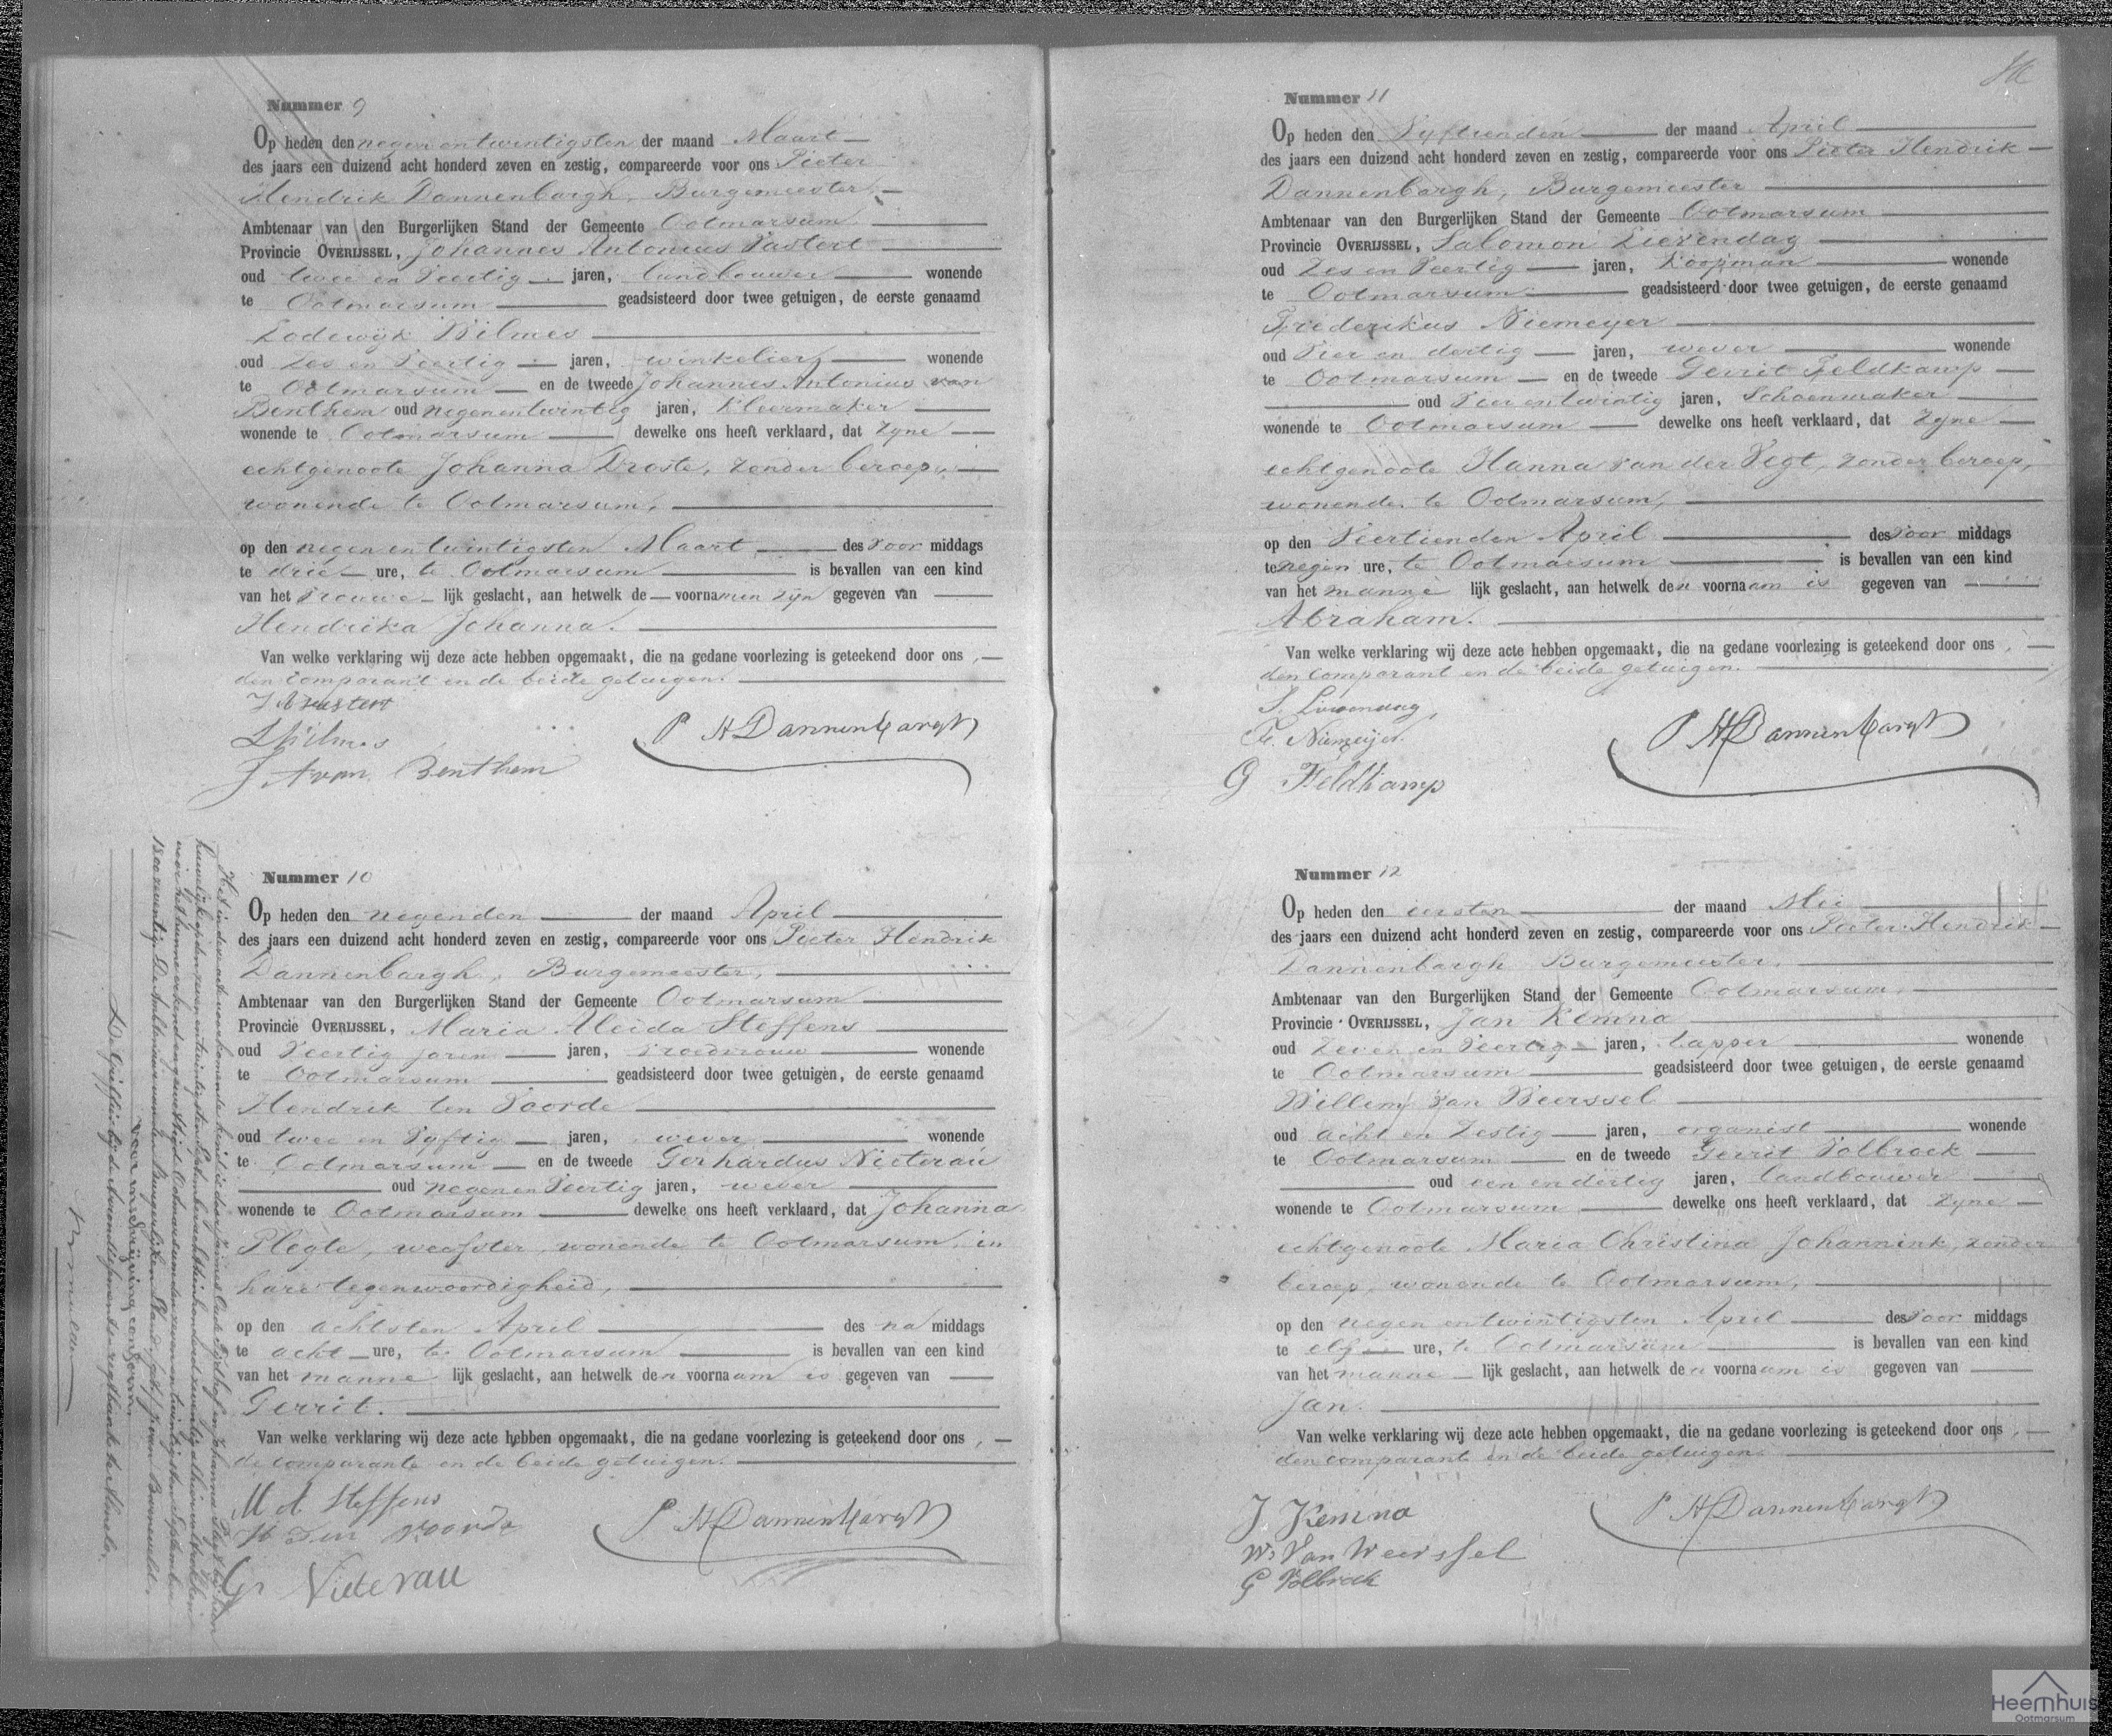 Nummer 9
Op heden den negen en twintigsten der maand Maart
des jaars een duizend acht honderd zeven en zestig, compareerde voor ons Pieter
Hendrik Dannenbargh, Burgemeester,
Ambtenaar van den Burgerlijken Stand der Gemeente Ootmarsum
Provincie OVERIJSSEL, Johannes Antonius
oud twee en Veertig jaren, landbouwer wonende
te Ootmarsum geadsisteerd door twee getuigen, de eerste genaamd
Lodewijk Wilmes
oud Zes en Veertig jaren, winkelier, wonende
te Ootmarsum en de tweede Johannes Antonius van
Benthem oud negenentwintig jaren, Kleermaker
wonende te Ootmarsum dewelke ons heeft verklaard, dat Zyne
echtgenoote Johanna Droste, zonder beroep,
wonende te Ootmarsum,
op den negen en twintigsten Maart des voor middags
te drie ure, te Ootmarsum is bevallen van een kind
van het vrouwe lijk geslacht, aan hetwelk de voornamen zyn gegeven van
Hendrika Johanna.
Van welke verklaring wij deze acte hebben opgemaakt, die na gedane voorlezing is geteekend door ons,
den comparant en de beide getuigen.
L Wilmes
P H Dannenbargh
J A van Benthem
Nummer 10
Op heden den negenden der maand April
des jaars een duizend acht honderd zeven en zestig, compareerde voor ons Pieter Hendrik
Dannenbargh, Burgemeester,
Ambtenaar van den Burgerlijken Stand der Gemeente Ootmarsum
Provincie OVERIJSSEL, Maria Aleida Steffens
oud Veertig jaren jaren, vroedvrouw wonende
te Ootmarsum geadsisteerd door twee getuigen, de eerste genaamd
Hendrik ten Voorde
oud twee en Vyftig jaren, wever, wonende
te Ootmarsum en de tweede Gerhardus Nieterau
oud negen en Veertig jaren, wever
wonende te Ootmarsum dewelke ons heeft verklaard, dat Johanna
Plegte, weefster, wonende te Ootmarsum, in
hare tegenwoordigheid,
op den achtsten April des na middags
te acht ure, te Ootmarsum is bevallen van een kind
van het manne lijk geslacht, aan hetwelk den voornaam is gegeven van
Gerrit.
Van welke verklaring wij deze acte hebben opgemaakt, die na gedane voorlezing is geteekend door ons,
de comparante en de beide getuigen.
M A Steffens
H Ten Voorde
P H Dannenbargh
G Nieterau
Het in deze acte voorkomende kind is door
huwelijk op den zeven en twintigsten September achttienhonderd zeventig
De Ambtenaar van den Burgerlijken Stand,
Voor inschrijving conform
De Griffier bij de Arrondissements regtbank te Almelo,
Nummer 11
Op heden den Vyftienden der maand April
des jaars een duizend acht honderd zeven en zestig, compareerde voor ons Pieter Hendrik
Dannenbargh, Burgemeester
Ambtenaar van den Burgerlijken Stand der Gemeente Ootmarsum
Provincie OVERIJSSEL, Salomon Lievendag
oud Zes en Veertig jaren, Koopman wonende
te Ootmarsum geadsisteerd door twee getuigen, de eerste genaamd
Frederikus Niemeyer
oud Vier en dertig jaren, wever wonende
te Ootmarsum en de tweede Gerrit Feldkamp
oud Vier en twintig jaren, Schoenmaker
wonende te Ootmarsum dewelke ons heeft verklaard, dat Zyne
echtgenoote Hanna van der Vegt, zonder beroep,
wonende te Ootmarsum,
op den Veertienden April des voor middags
te negen ure, te Ootmarsum is bevallen van een kind
van het manne lijk geslacht, aan hetwelk den voornaam is gegeven van
Abraham.
Van welke verklaring wij deze acte hebben opgemaakt, die na gedane voorlezing is geteekend door ons,
den comparant en de beide getuigen.
F. Niemeijer
P H Dannenbargh
G Feldkamp
Nummer 12
Op heden den eersten der maand Mei
des jaars een duizend acht honderd zeven en zestig, compareerde voor ons Pieter Hendrik
Dannenbargh Burgemeester,
Ambtenaar van den Burgerlijken Stand der Gemeente Ootmarsum,
Provincie OVERIJSSEL, Jan Kemna
oud Zeven en Veertig jaren, tapper wonende
te Ootmarsum geadsisteerd door twee getuigen, de eerste genaamd
Willem van Weerssel
oud acht en Zestig jaren, organist wonende
te Ootmarsum en de tweede Gerrit Volbroek
oud een en dertig jaren, landbouwer
wonende te Ootmarsum dewelke ons heeft verklaard, dat Zyne
echtgenoote Maria Christina Johannink, zonder
beroep, wonende te Ootmarsum,
op den negen en twintigsten April des voor middags
te elf ure, te Ootmarsum is bevallen van een kind
van het manne lijk geslacht, aan hetwelk den voornaam is gegeven van
Jan.
Van welke verklaring wij deze acte hebben opgemaakt, die na gedane voorlezing is geteekend door ons,
den comparant en de beide getuigen.
J Kemna
P H Dannenbargh
W. Van Weerssel
G Volbroek
Heemhuis
Ootmarsum